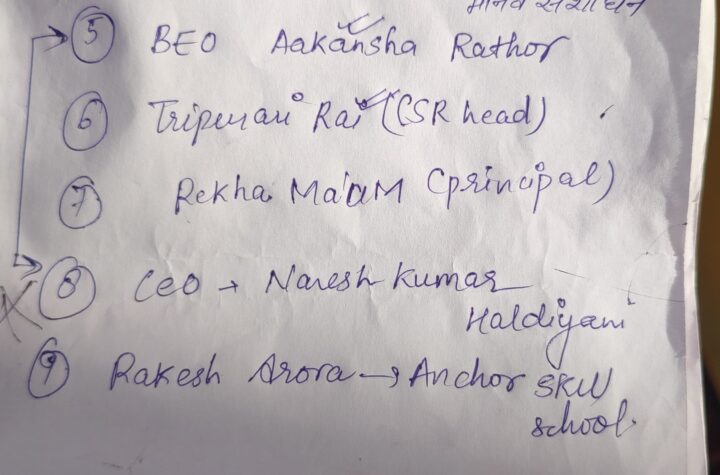 मानव संसाधन
5 BEO Aakansha Rathor
6 Tripurari Rai (CSR head)
7 Rekha Ma'aM (principal)
8 CEO → Naresh Kumar
Haldiyani
9 Rakesh Arora → Anchor SKill
school.